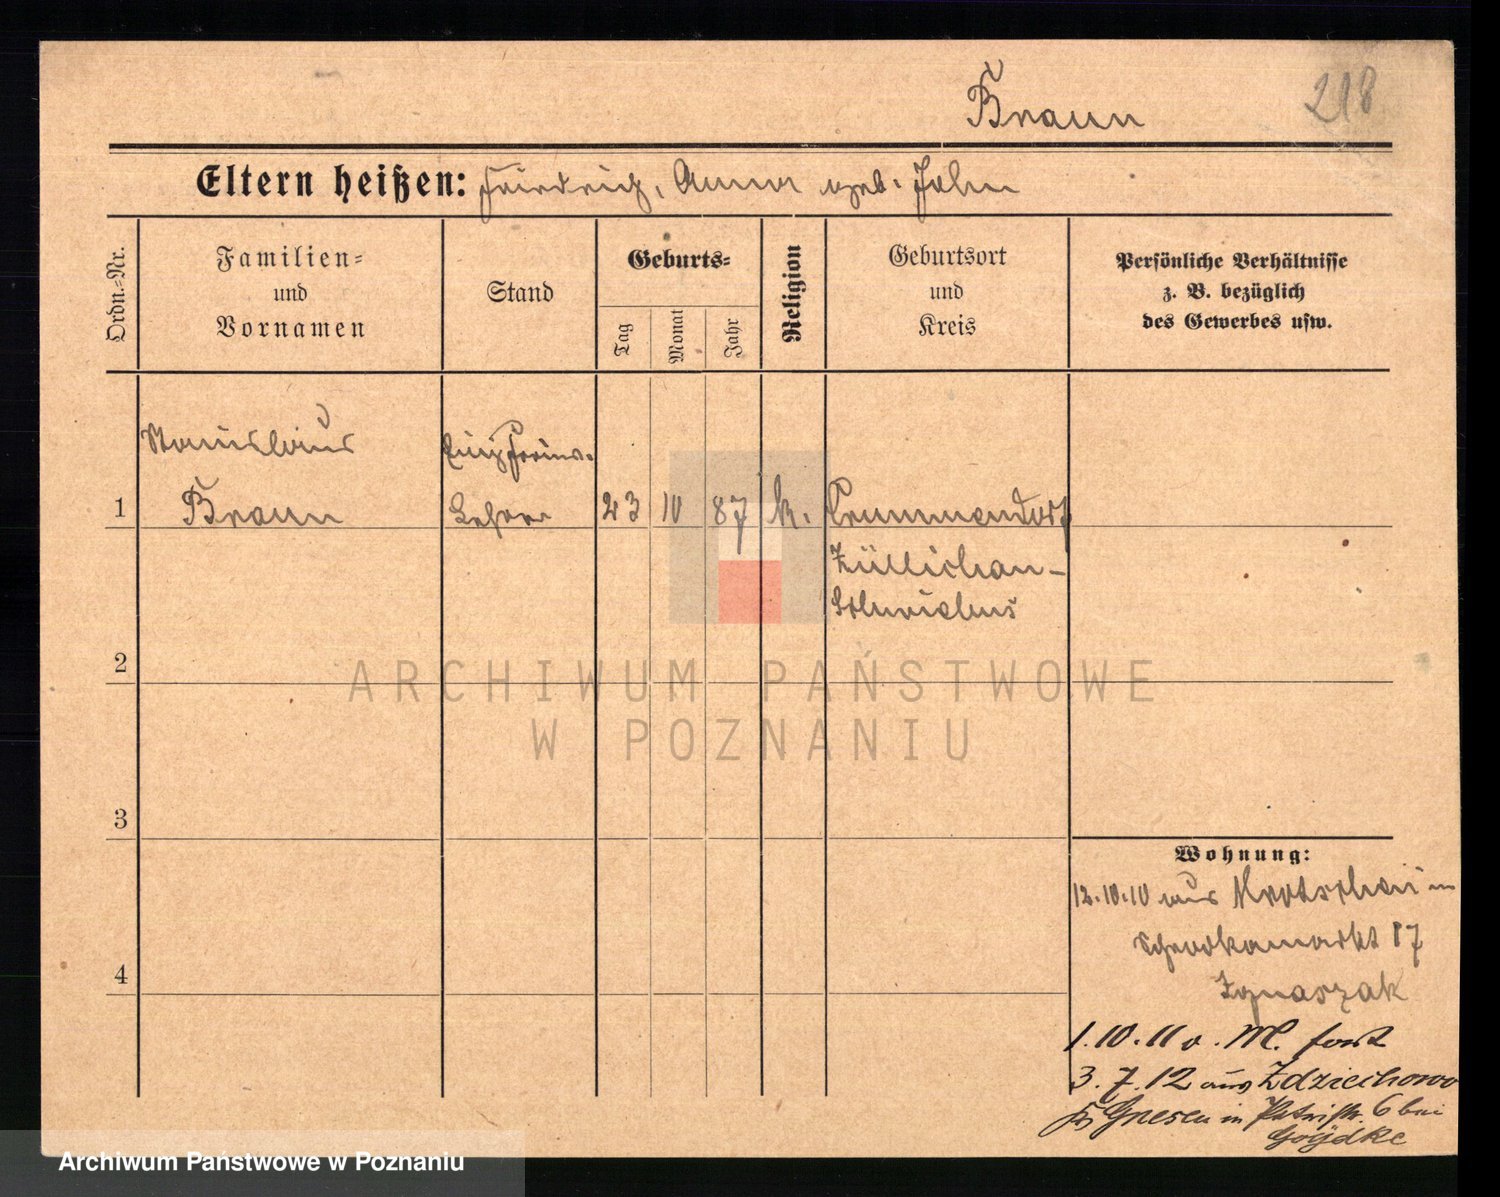 Braun
218
Eltern heißen: Friedrich, Anna geb. Jahn
Ordn.-Nr.
Familien-
und
Vornamen
Stand
Geburts-
Tag
Monat
Jahr
Religion
Geburtsort
und
Kreis
Persönliche Verhältnisse
z. B. bezüglich
des Gewerbes usw.
1
Stanislaus
Braun
Lehrer
23 10 87 k.
Krummendorf
Züllichau-
Schwiebus
2
3
4
Wohnung:
12.10.10 aus Krotschin in
87
Ignaszak
1.10.11 v. M. fort
3.7.12 aus Zdziechowo
Gnesen in 6 bei
ARCHIWUM PAŃSTWOWE
W POZNANIU
Archiwum Państwowe w Poznaniu